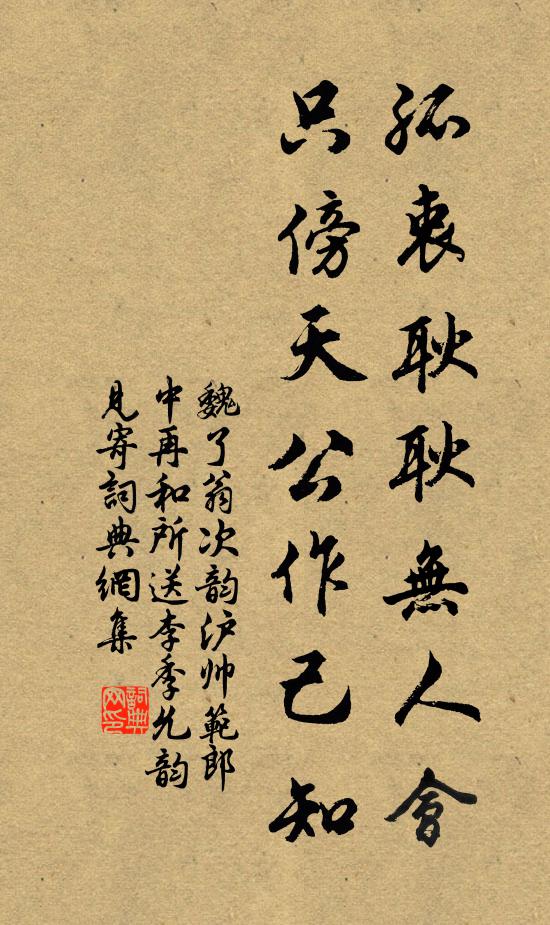 孤衷耿耿無人會
只傍天公作己知
魏了翁次韵沪帅範郎
中再和所送李季允韵
見寄詞典網集
詞典網印